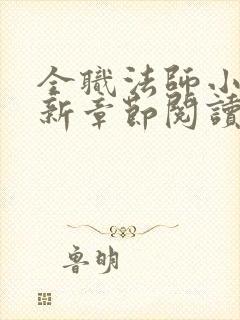 全職法師小
新章節閱讀
魯明